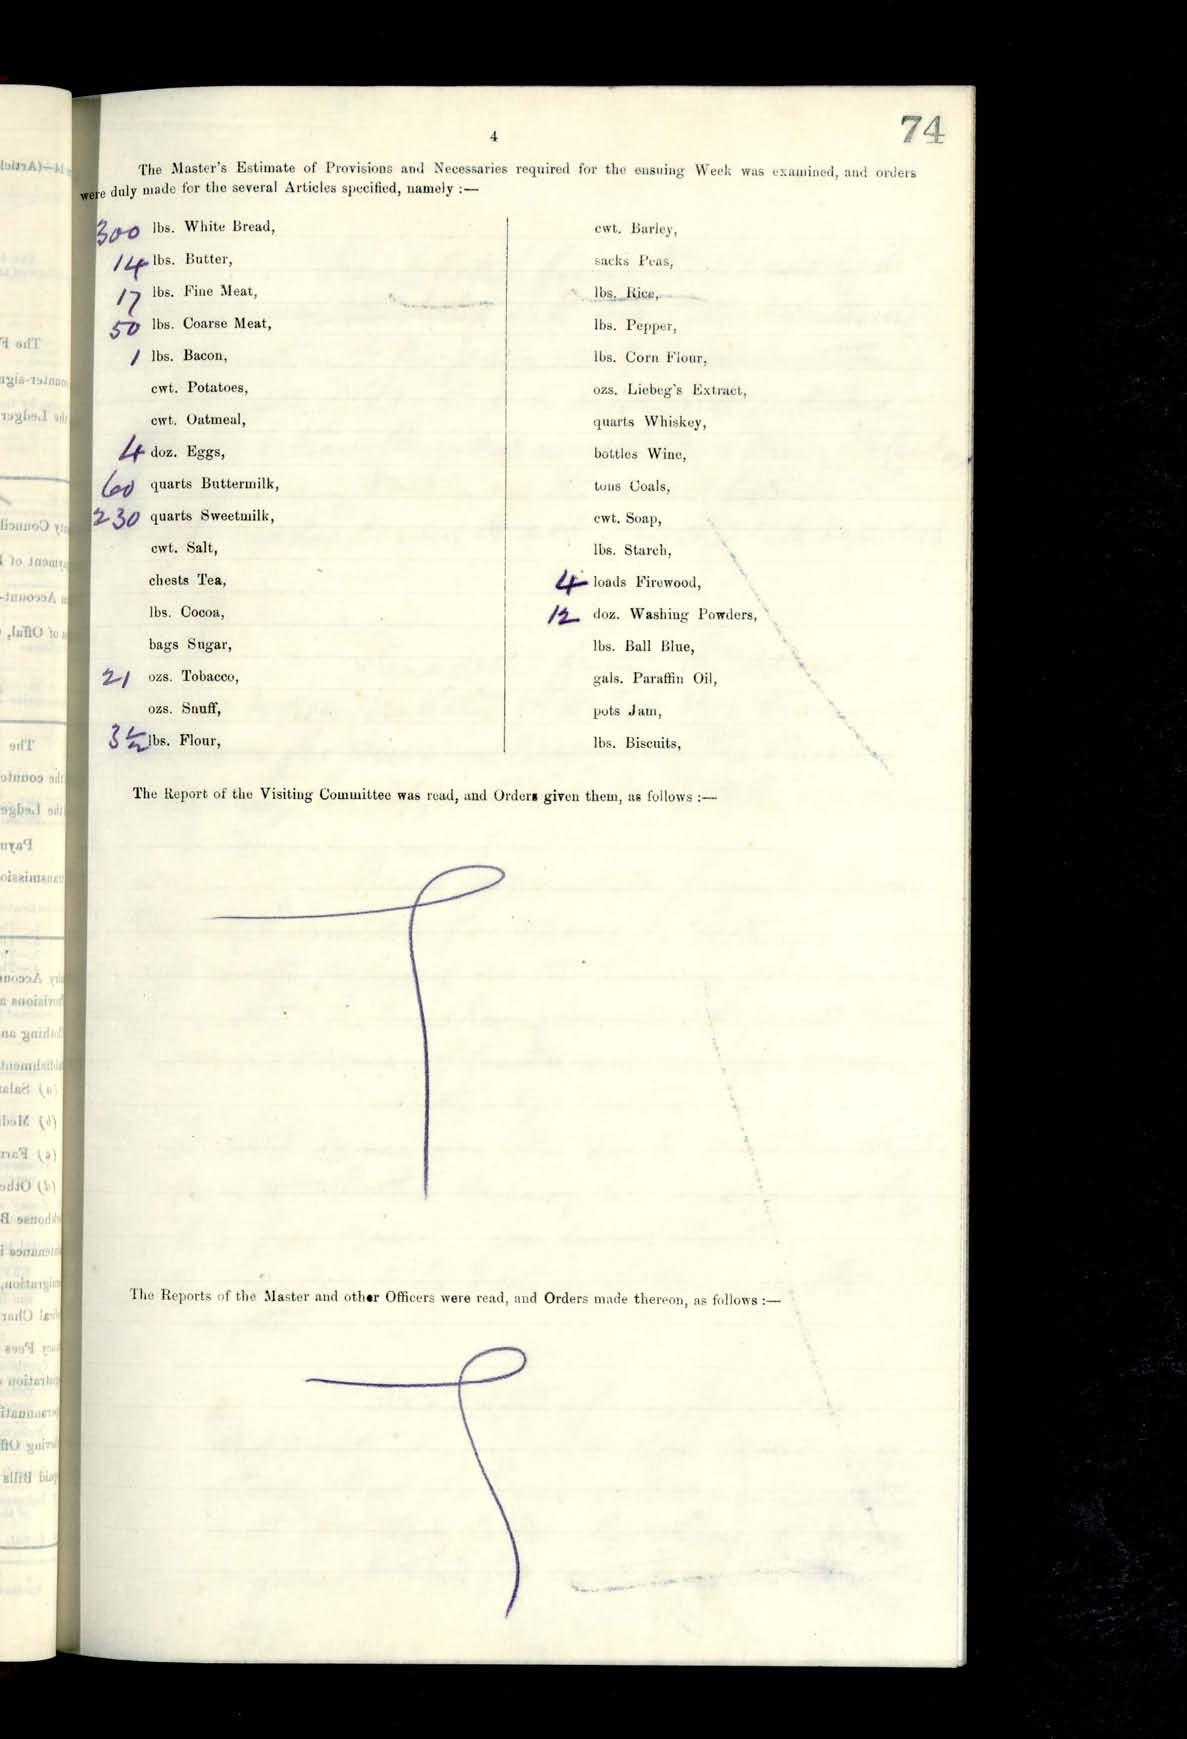 4
74
The Master's Estimate of Provisions and Necessaries required for the ensuing Week was examined, and orders
were duly made for the several Articles specified, namely :—
300 lbs. White Bread,
14 lbs. Butter,
17 lbs. Fine Meat,
50 lbs. Coarse Meat,
1 lbs. Bacon,
cwt. Potatoes,
cwt. Oatmeal,
4 doz. Eggs,
60 quarts Buttermilk,
230 quarts Sweetmilk,
cwt. Salt,
chests Tea,
lbs. Cocoa,
bags Sugar,
21 ozs. Tobacco,
ozs. Snuff,
3½ lbs. Flour,
cwt. Barley,
sacks Peas,
lbs. Rice,
lbs. Pepper,
lbs. Corn Flour,
ozs. Liebeg's Extract,
quarts Whiskey,
bottles Wine,
tons Coals,
cwt. Soap,
lbs. Starch,
4 loads Firewood,
12 doz. Washing Powders,
lbs. Ball Blue,
gals. Paraffin Oil,
pots Jam,
lbs. Biscuits,
The Report of the Visiting Committee was read, and Orders given them, as follows :—
The Reports of the Master and other Officers were read, and Orders made thereon, as follows :—